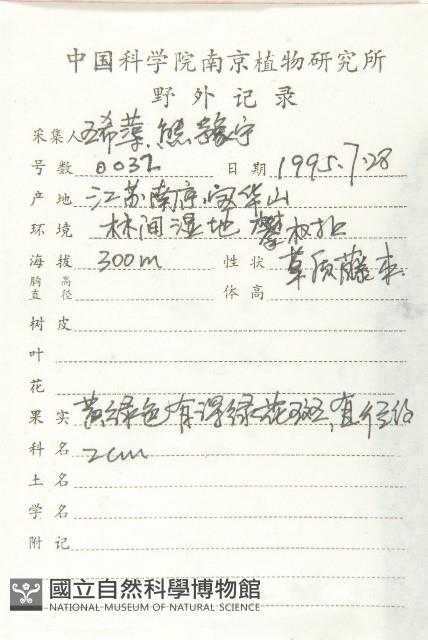 中国科学院南京植物研究所
野外记录
采集人 王希蕖 熊豫宁
号数 0032 日期 1995.7.28
产地 江苏南京宝华山
环境 林间湿地 攀
海拔 300m 性状 草质藤本
胸高直径 体高
树皮
叶
花
果实 黄绿色有深绿花斑,直径约
科名 2cm
土名
学名
附记
國立自然科學博物館
NATIONAL MUSEUM OF NATURAL SCIENCE